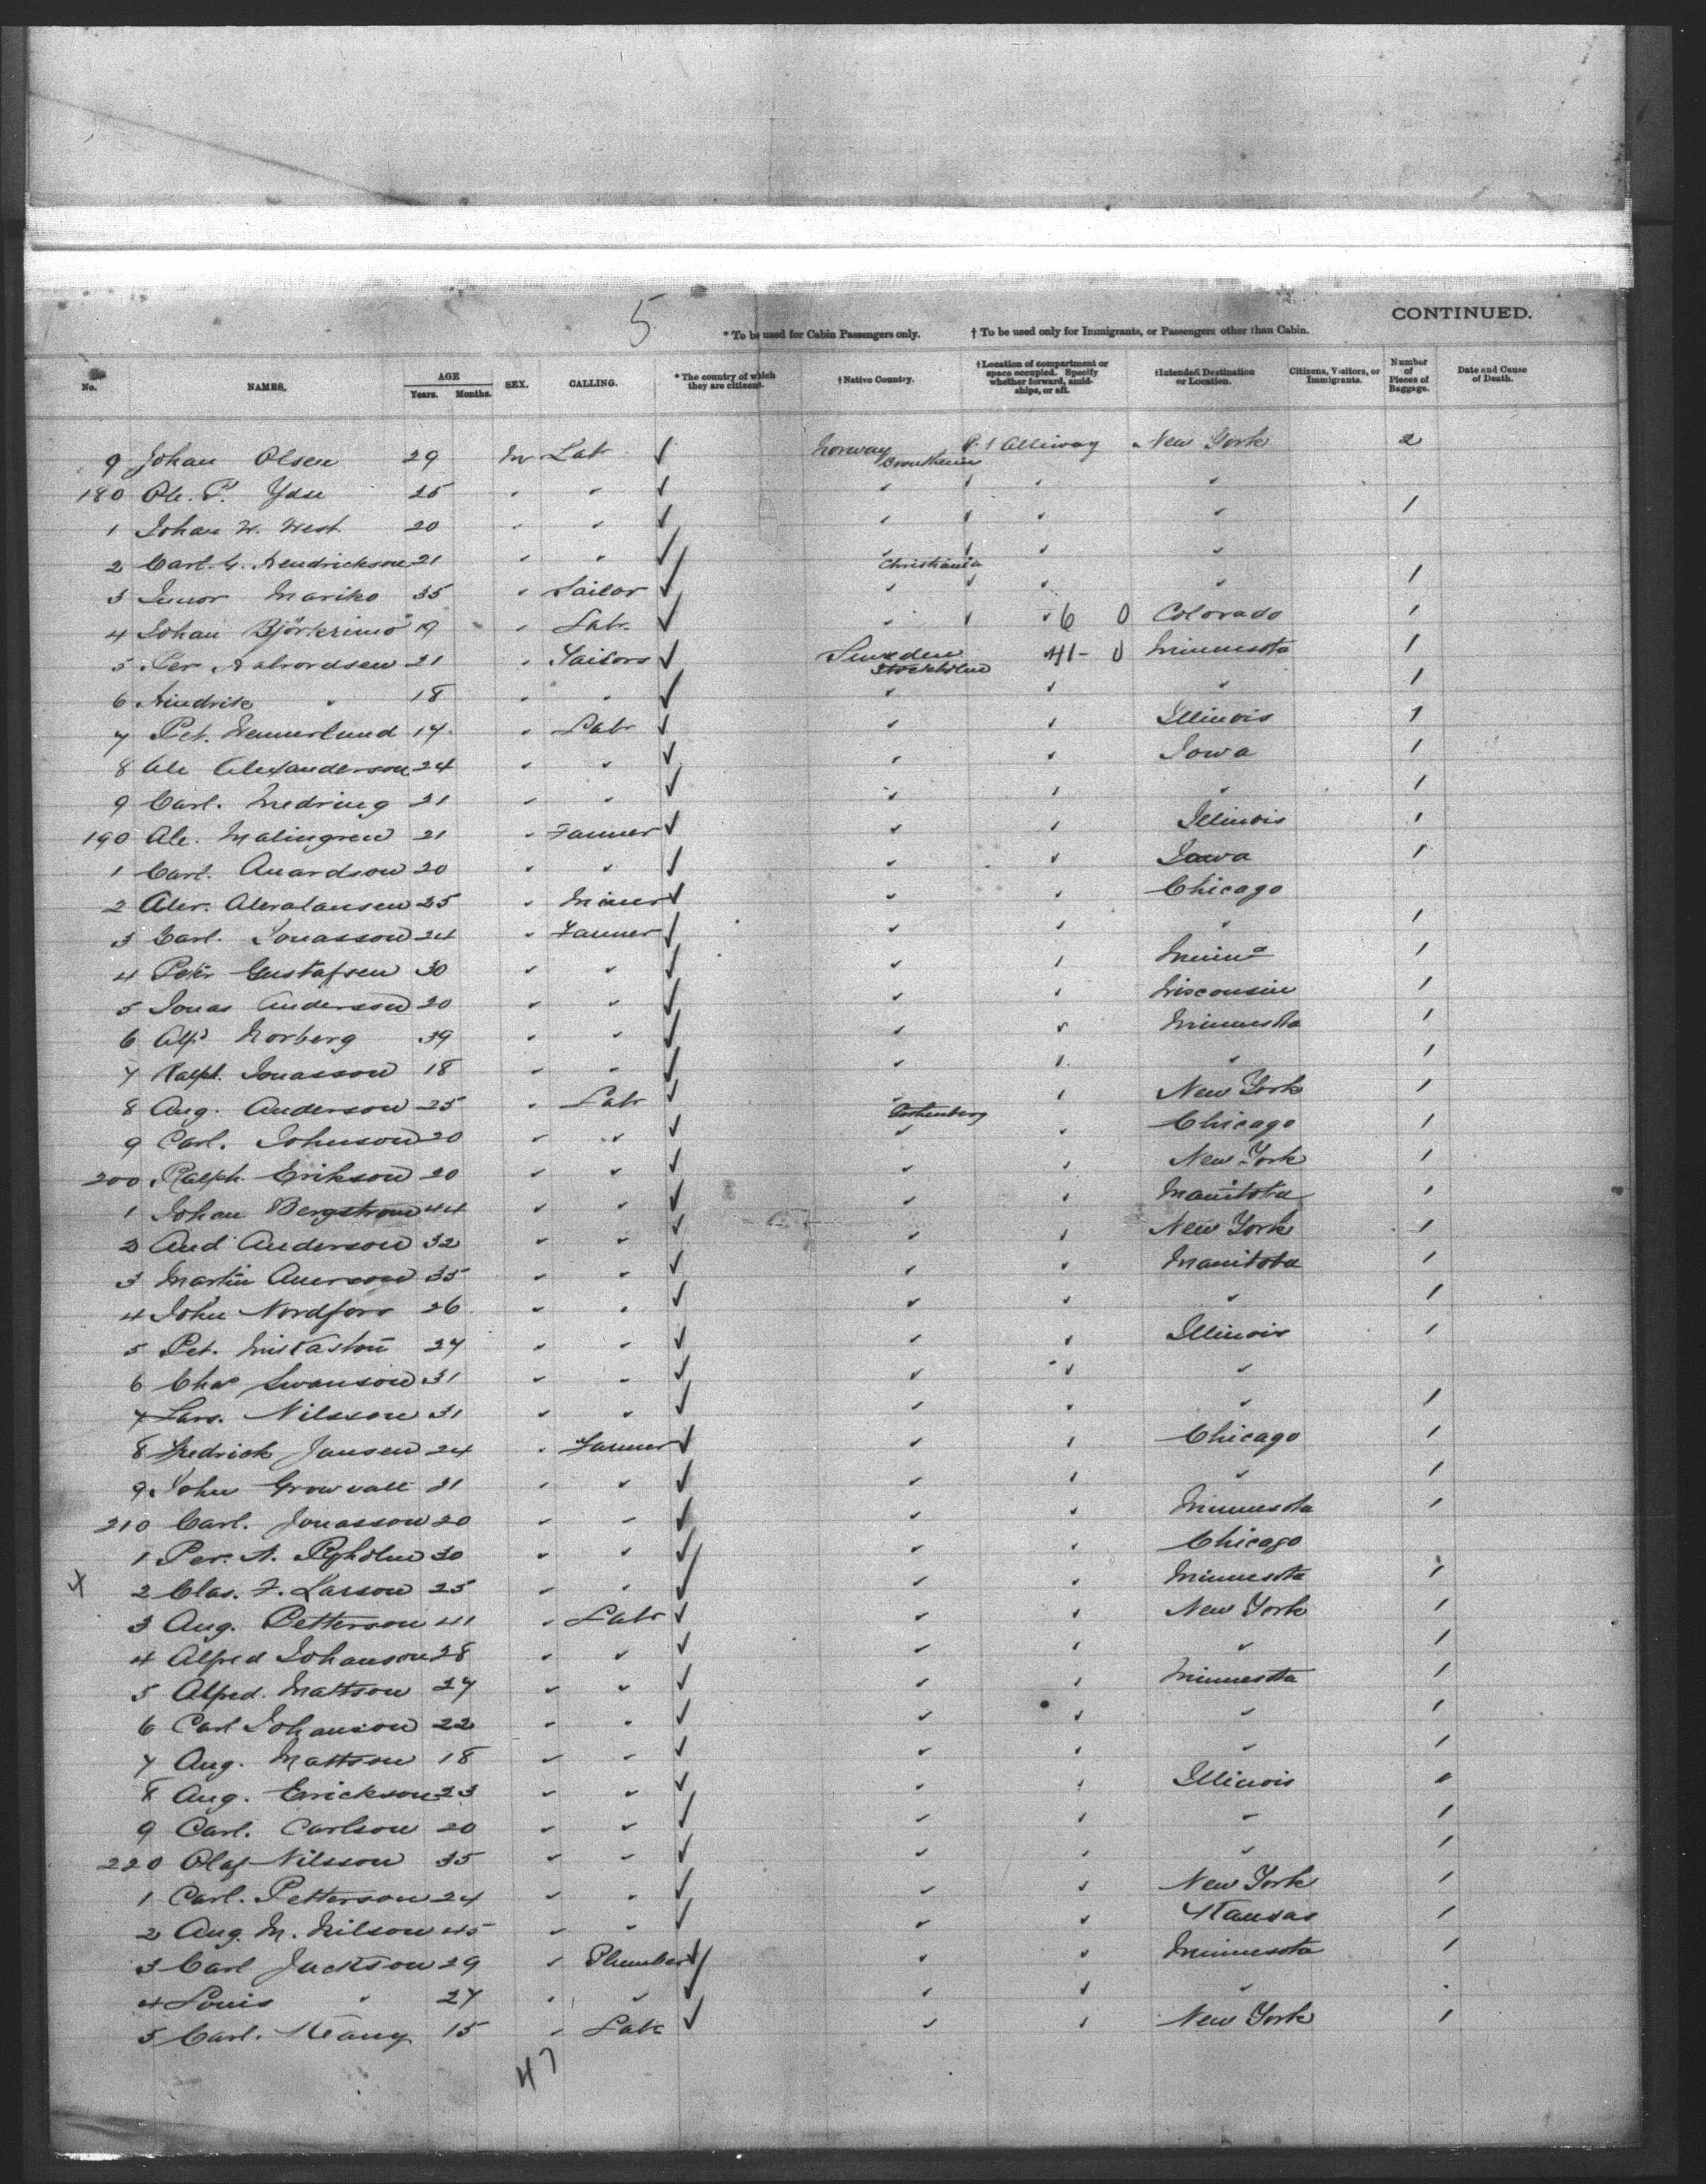 5
CONTINUED.
* To be used for Cabin Passengers only. † To be used only for Immigrants, or Passengers other than Cabin.
No. NAMES. AGE Years. Months. SEX. CALLING. * The country of which they are citizens. † Native Country. † Location of compartment or space occupied. Specify whether forward, amidships, or aft. † Intended Destination or Location. Citizens, Visitors, or Immigrants. Number of Pieces of Baggage. Date and Cause of Death.
9 Johan Olsen 29 M Labr ✓ Norway Alliway New York 2
180 Ole. P. 25 " " ✓ " " "
1 Johan W. West 20 " " ✓ " " " 1
2 Carl. G. Hendrickson 21 " " ✓ " " "
3 35 " Sailor ✓ Christiania " " 1
4 Johan 19 " Labr. ✓ " " 6 0 Colorado 1
5 Per 21 " Sailors ✓ Sweden Stockholm 41- 0 Minnesota 1
6 Hindrik " 18 " " ✓ " " " 1
7 Pet. Wennerlund 17 " Labr ✓ " " Illinois 1
8 Ale Alexanderson 24 " " ✓ " " Iowa 1
9 Carl. 21 " " ✓ " " " 1
190 Ale. Malingren 21 " Farmer ✓ " " Illinois 1
1 Carl. 20 " " ✓ " " Iowa 1
2 25 " Miner ✓ " " Chicago
3 Carl. Jonasson 24 " Farmer ✓ " " " 1
4 Peter Gustafsen 30 " " ✓ " " Minna 1
5 Jonas Anderson 20 " " ✓ " " Wisconsin 1
6 Alfd Norberg 39 " " ✓ " " Minnesota 1
7 Ralph. Jonasson 18 " " ✓ " " " 1
8 Aug. Anderson 25 " Labr ✓ " " New York 1
9 Carl. Johnson 20 " " ✓ Gothenberg " " Chicago 1
200 Ralph. Erikson 20 " " ✓ " " New York 1
1 Johan Bergstrom 44 " " ✓ " " Manitoba 1
2 And Anderson 32 " " ✓ " " New York 1
3 Martin 35 " " ✓ " " Manitoba 1
4 John Nordfors 26 " " ✓ " " " 1
5 Pet. 27 " " ✓ " " Illinois 1
6 Chas Swanson 31 " " ✓ " " "
7 Lars. Nilsson 31 " " ✓ " " " 1
8 Fredrick Jansen 24 " Farmer ✓ " " Chicago 1
9 John Growvall 21 " " ✓ " " " 1
210 Carl. Jonasson 20 " " ✓ " " Minnesota 1
1 Per. A. 30 " " ✓ " " Chicago
x 2 Clas. F. Larson 25 " " ✓ " " Minnesota 1
3 Aug. Petterson 41 " Labr ✓ " " New York 1
4 Alfred Johanson 28 " " ✓ " " " 1
5 Alfred. Mattson 27 " " ✓ " " Minnesota 1
6 Carl Johanson 22 " " ✓ " " " 1
7 Aug. Mattson 18 " " ✓ " " " 1
8 Aug. Erickson 23 " " ✓ " " Illinois "
9 Carl. Carlson 20 " " ✓ " " " 1
220 Olaf Nilsson 35 " " ✓ " " " 1
1 Carl. Petterson 24 " " ✓ " " New York 1
2 Aug. M. Nilson 45 " " ✓ " " Kansas 1
3 Carl Jackson 29 " Plumber ✓ " " Minnesota 1
4 Louis " 27 " " ✓ " " "
5 Carl. 15 " Labr ✓ " " New York 1
47